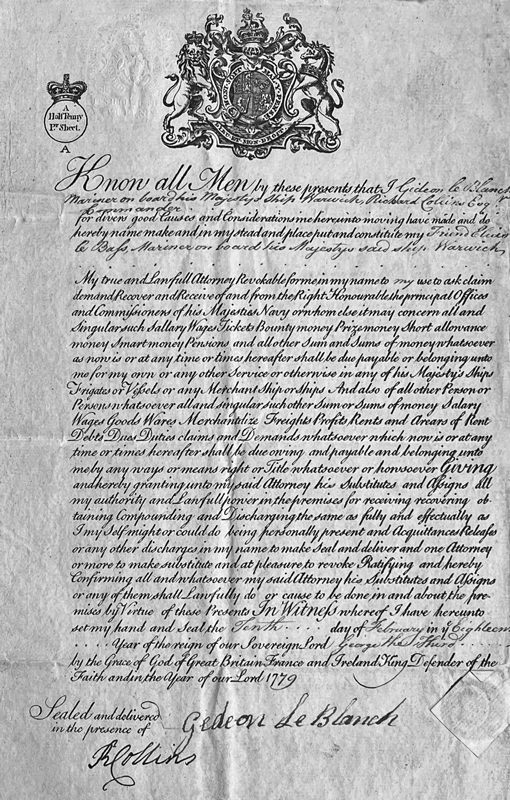 A
Half Penny
Pr. Sheet.
A
HONI SOIT QUI MAL Y PENSE
DIEU ET MON DROIT
Know all Men by these presents that I Gideon le Blanch
Mariner on board his Majestys Ship Warwick, Richard Collins Esqr.
Commander
for divers good Causes and Considerations me hereunto moving have made and do
hereby name make and in my stead and place put and constitute my Friend
Le Bass, Mariner on board his Majestys said ship Warwick
My true and Lawfull Attorney Revokable for me in my name to my use to ask claim
demand Recover and Receive of and from the Right Honourable the principal Offices
and Commissioners of his Majesties Navy or whom else it may concern all and
Singular such Sallary Wages Tickets Bounty money Prize money Short allowance
money Smart money Pensions and all other Sum and Sums of money whatsoever
as now is or at any time or times hereafter shall be due payable or belonging unto
me for my own or any other Service or otherwise in any of his Majesty's Ships
Frigates or Vessels or any Merchant Ship or Ships And also of all other Person or
Persons whatsoever all and singular such other Sum or Sums of money Salary
Wages Goods Wares Merchandize Freights Profits Rents and Arears of Rent
Debts Dues Duties claims and Demands whatsoever which now is or at any
time or times hereafter shall be due owing and payable and belonging unto
me by any ways or means right or Title whatsoever or howsoever Giving
and hereby granting unto my said Attorney his Substitutes and Assigns all
my authority and Lawfull power in the premises for receiving recovering ob-
taining Compounding and Discharging the same as fully and effectually as
I my Self might or could do being personally present and Acquittances Releases
or any other discharges in my name to make Seal and deliver and one Attorney
or more to make substitute and at pleasure to revoke Ratifying and hereby
Confirming all and whatsoever my said Attorney his Substitutes and Assigns
or any of them shall Lawfully do or cause to be done in and about the pre-
mises by Virtue of these Presents In Witness whereof I have hereunto
set my hand and Seal the Tenth day of February in ye Eighteen
Year of the reign of our Sovereign Lord George the Third
by the Grace of God of Great Britain France and Ireland King Defender of the
Faith and in the Year of our Lord 1779
Sealed and delivered
in the presence of
Gedeon Le Blanch
R Collins